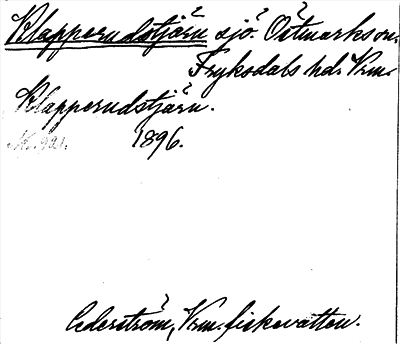 Klapperudstjärn sjö. Östmarks sn.
Fryksdals hd. Vrm.
Klapperudstjärn.
1896.
Cederström, Vrm. fiskevatten.